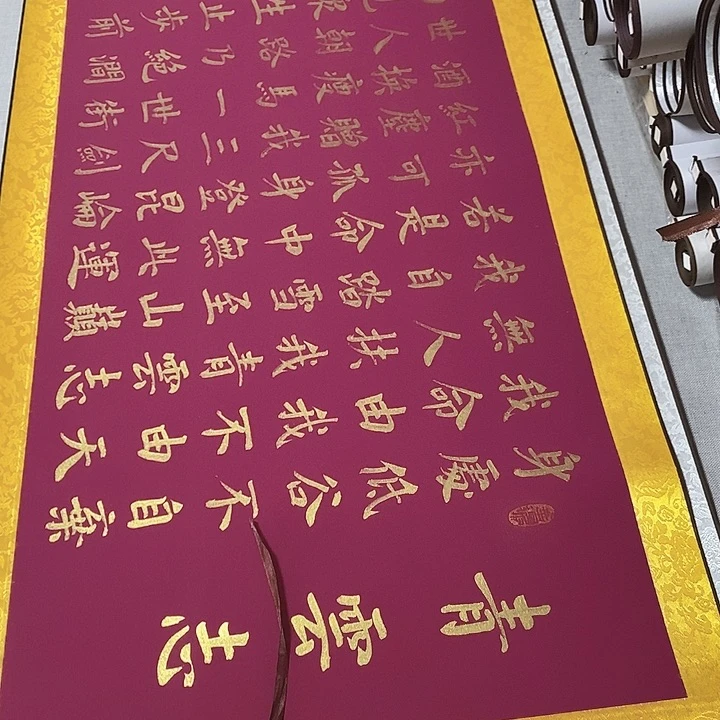 青雲志
身處低谷不自棄
我命由我不由天
無人扶我青雲志
我自踏雪至山巔
若是命中無此運
亦可孤身登昆崙
紅塵贈我三尺劍
酒換瘦馬一世街
世人朝路乃絕澗
生止步前